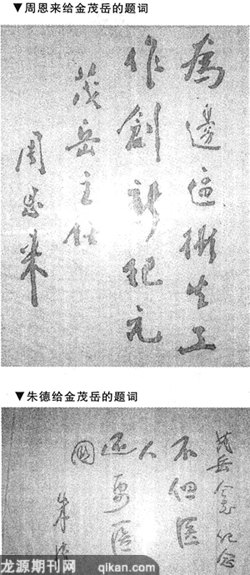 ▼周恩来给金茂岳的题词
為邊區衛生工
作創新紀元
茂岳主任
周恩来
▼朱德给金茂岳的题词
茂岳仝志纪念
不但医
人
还要医
國
朱德
龙源期刊网
qikan.com